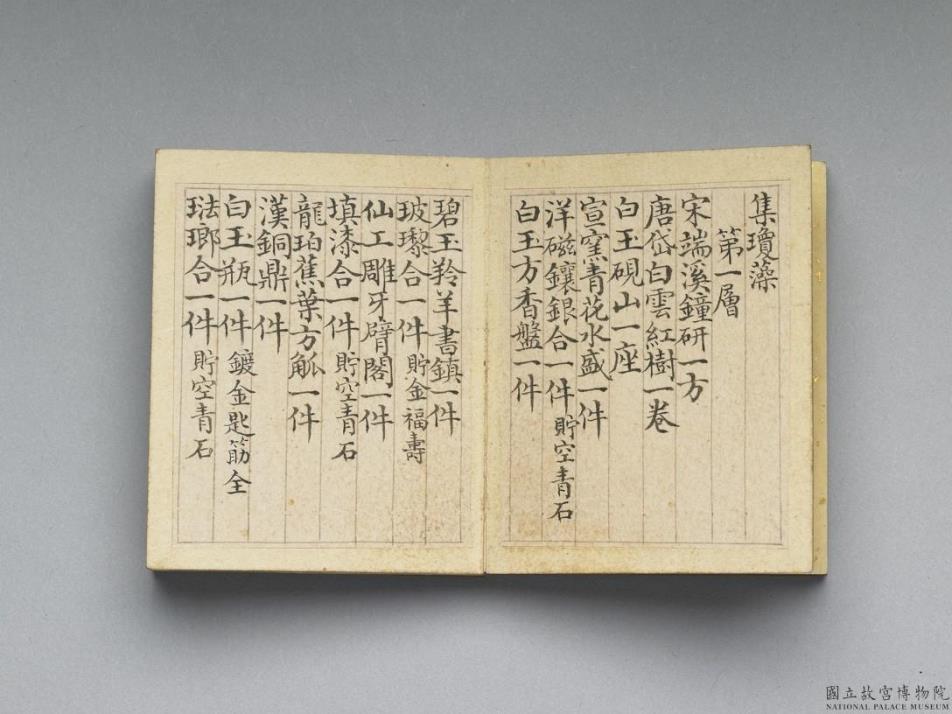 集瓊藻
第一層
宋端溪鐘研一方
唐岱白雲紅樹一卷
白玉硯山一座
宣窯青花水盛一件
洋磁鑲銀合一件 貯空青石
白玉方香盤一件
碧玉羚羊書鎮一件
玻瓈合一件 貯金福壽
仙工雕牙臂閣一件
填漆合一件 貯空青石
龍珀蕉葉方觚一件
漢銅鼎一件
白玉瓶一件 鍍金匙筯全
琺瑯合一件 貯空青石
國立故宮博物院
NATIONAL PALACE MUSEUM